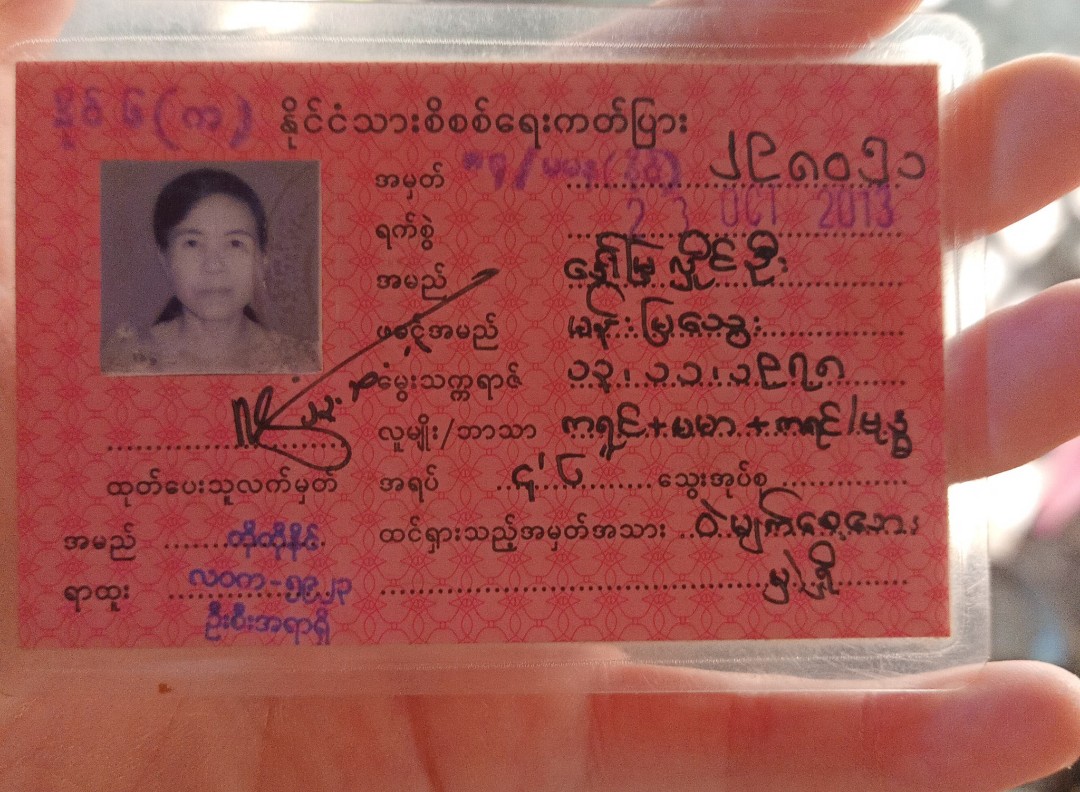 နိုင် ၆ (က) နိုင်ငံသားစိစစ်ရေးကတ်ပြား
အမှတ် ၁၄/မမန(နိုင်) ၂၉၈၀၅၁
ရက်စွဲ 23 OCT 2013
အမည် နော်မြလှိုင်ဦး
ဖခင်အမည် မန်းမြသွေး
မွေးသက္ကရာဇ် ၁၃.၁၁.၁၉၇၈
လူမျိုး/ဘာသာ ကရင်+ဗမာ +ကရင်/ဗုဒ္ဓ
အရပ် ၄' ၆ သွေးအုပ်စု
ထင်ရှားသည့်အမှတ်အသား ဝဲမျက်စေ့ဘေး
မှဲ့ရှိ
ထုတ်ပေးသူလက်မှတ်
အမည် ထိုထိုနိုင်
ရာထူး လဝက-၅၉၂၃
ဦးစီးအရာရှိ